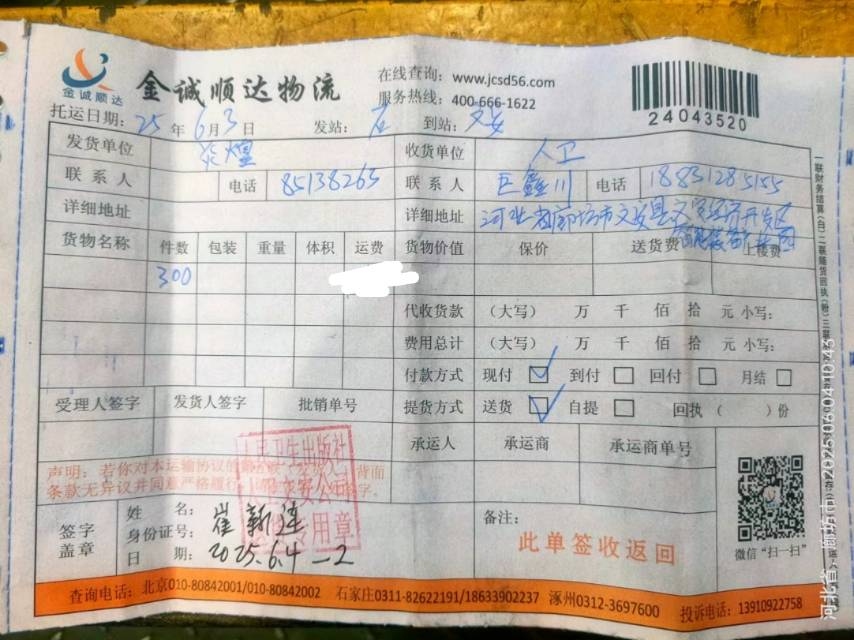 金诚顺达
金诚顺达物流
在线查询：www.jcsd56.com
服务热线：400-666-1622
24043520
托运日期：25 年 6 月 3 日 发站： 到站：文安
发货单位 炎煌 收货单位 人卫
联系人 电话 85138265 联系人 巨鑫川 电话 18831285155
详细地址 详细地址 河北省廊坊市文安县文安经济开发区
货物名称 件数 包装 重量 体积 运费 货物价值 保价 送货费 上楼费
300
代收货款 （大写） 万 仟 佰 拾 元 小写：
费用总计 （大写） 万 仟 佰 拾 元 小写：
付款方式 现付 ☑ 到付 □ 回付 □ 月结 □
受理人签字 发货人签字 批销单号 提货方式 送货 ☑ 自提 □ 回执（ ）份
承运人 承运商 承运商单号
人民卫生出版社
声明：若你对本运输协议的 背面
条款无异议并同意严格履行， 签字。
专用章
签字
盖章
姓名： 崔新连
身份证号：
日期： 2025.6.4 -2
备注：
此单签收返回
微信“扫一扫”
查询电话：北京010-80842001/010-80842002 石家庄0311-82622191/18633902237 涿州0312-3697600 投诉电话：13910922758